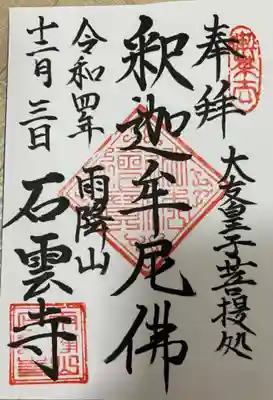 奉拝
大友皇子菩提処
釈迦牟尼佛
雨降山
石雲寺
令和四年
十二月三日